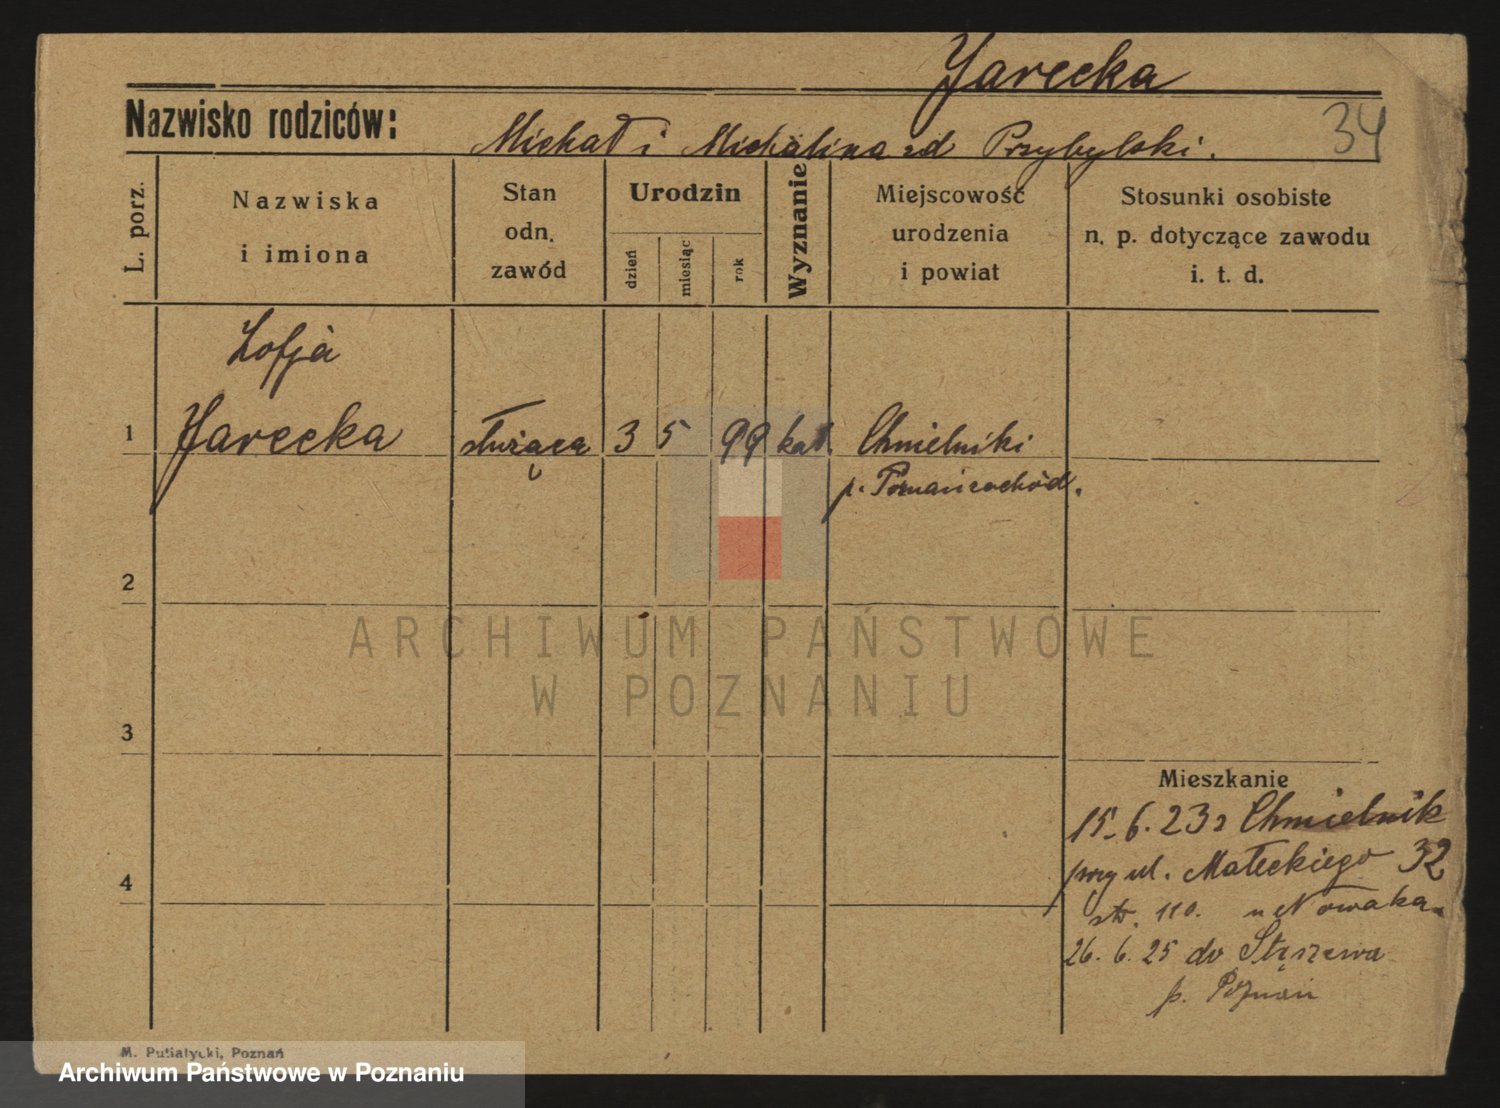 Jarecka
Nazwisko rodziców: Michał i Michalina zd Przybylski.
34
L. porz.
Nazwiska
i imiona
Stan
odn.
zawód
Urodzin
dzień
miesiąc
rok
Wyznanie
Miejscowość
urodzenia
i powiat
Stosunki osobiste
n. p. dotyczące zawodu
i. t. d.
Zofja
1 Jarecka służąca 3 5 99 kat. Chmielniki
p. Poznań zachód.
2
ARCHIWUM PAŃSTWOWE
W POZNANIU
3
Mieszkanie
15. 6. 23 z Chmielnik
przy ul. Małeckiego 32
str. 110. u Nowaka
4
26. 6. 25 do Stęszewa
p. Poznań
M. Putiatycki, Poznań
Archiwum Państwowe w Poznaniu